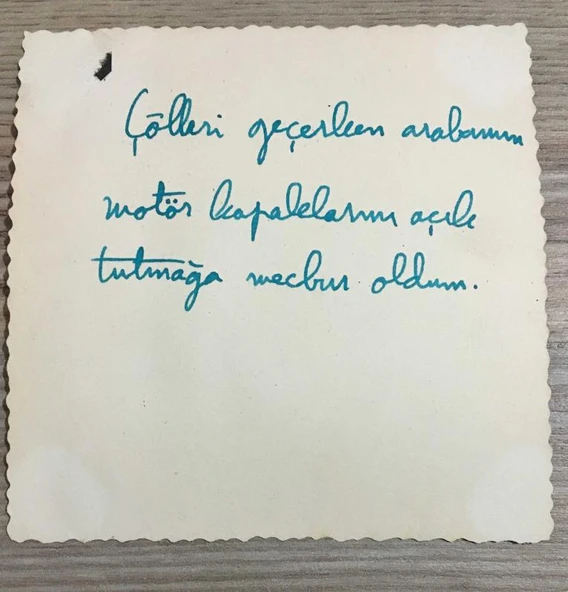 Çölleri geçerken arabanın
motör kapaklarını açık
tutmağa mecbur oldum.